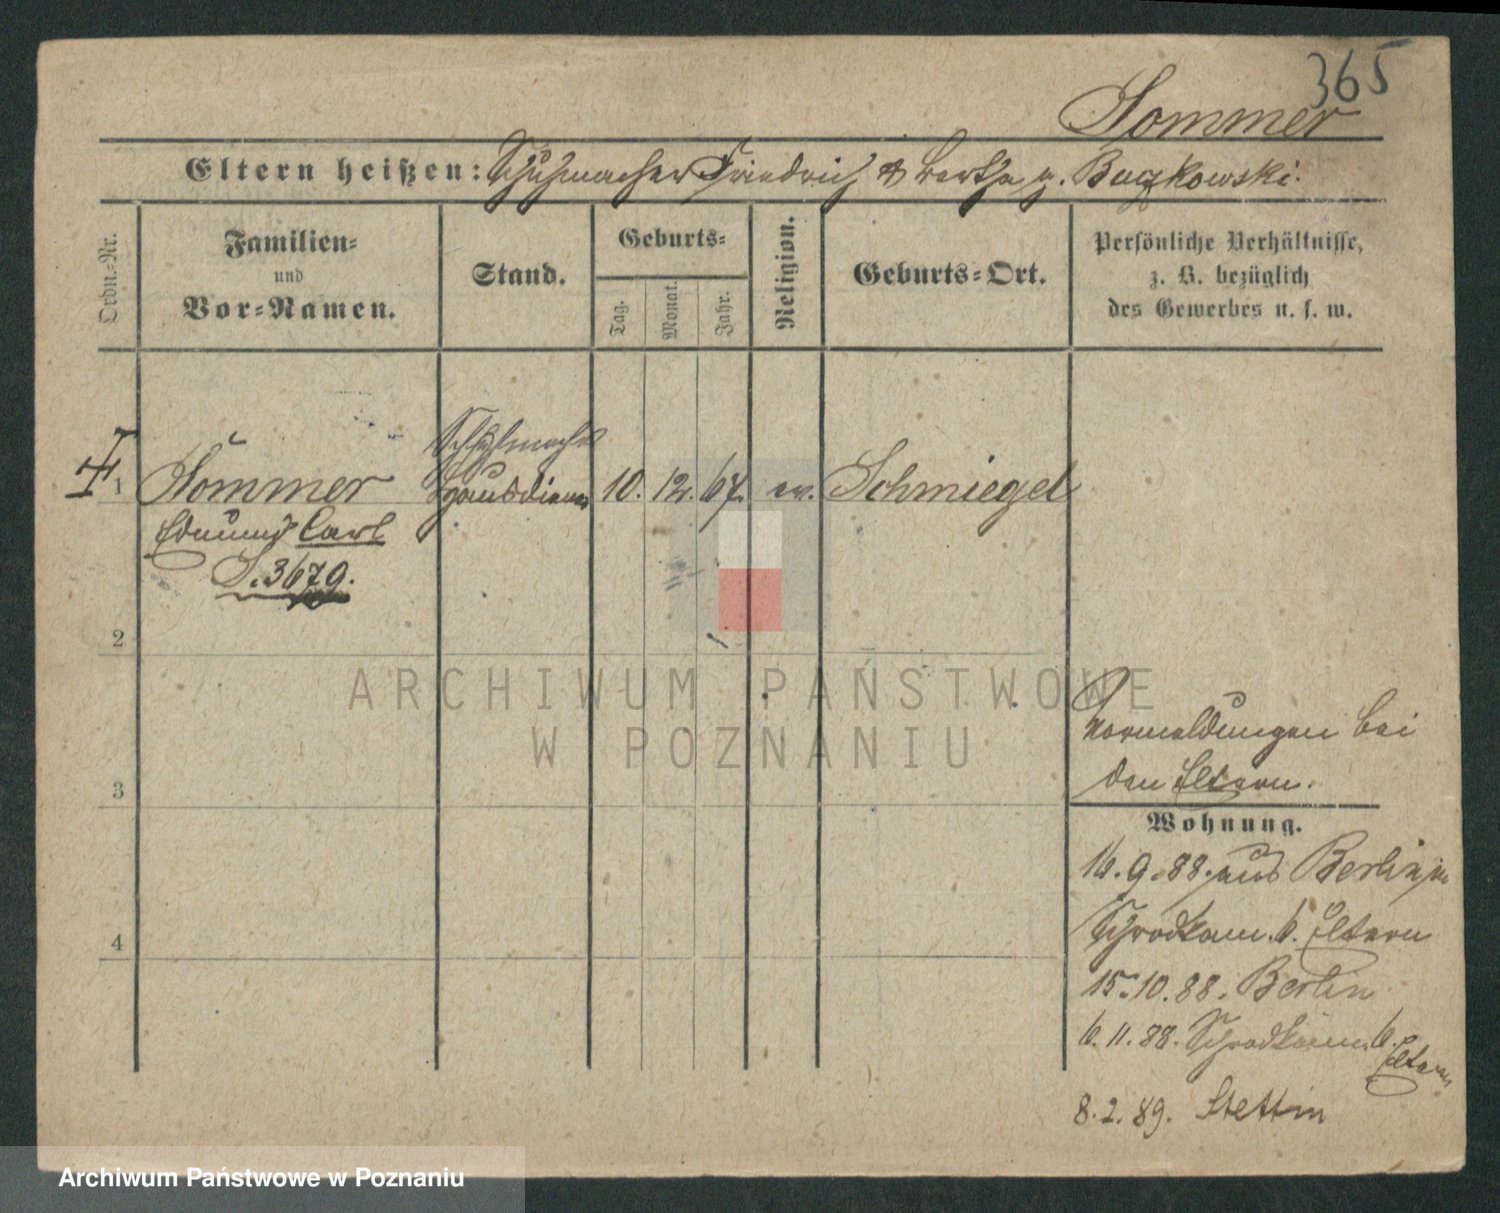 365
Sommer
Eltern heißen: Schuhmacher Friedrich & Bertha g. Buczkowski.
Ordn.-Nr.
Familien-
und
Vor-Namen.
Stand.
Geburts-
Tag.
Monat.
Jahr.
Religion.
Geburts-Ort.
Persönliche Verhältnisse,
z. B. bezüglich
des Gewerbes u. s. w.
Schuhmacher
1 Sommer Hausdiener 10. 12. 67. ev. Schmiegel
Edmund Carl
S. 3679.
2
3
4
Vormeldungen bei
den Eltern.
Wohnung.
16. 9. 88. aus Berlin
b. Eltern
15. 10. 88. Berlin
6. 11. 88. b.
Eltern
8. 2. 89. Stettin
ARCHIWUM PAŃSTWOWE
W POZNANIU
Archiwum Państwowe w Poznaniu